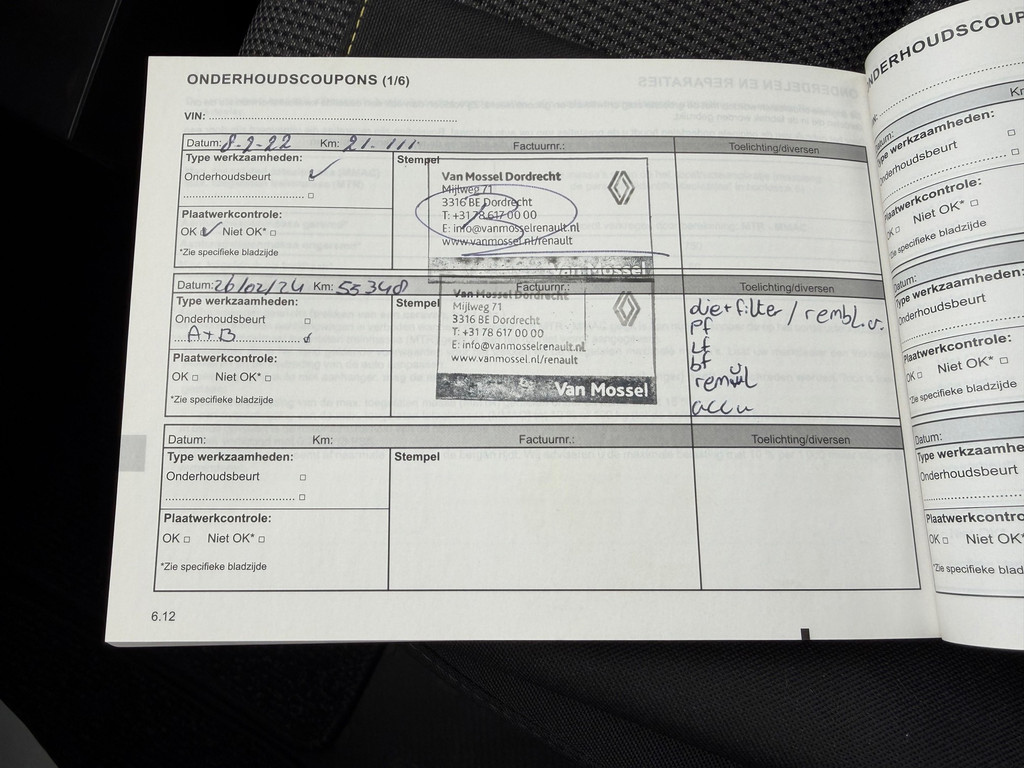 ONDERHOUDSCOUPONS (1/6)
VIN:
Datum: 8-2-22 Km: 21.111 Factuurnr.: Toelichting/diversen
Type werkzaamheden:
Onderhoudsbeurt
Plaatwerkcontrole:
OK Niet OK*
*Zie specifieke bladzijde
Stempel
Van Mossel Dordrecht
Mijlweg 71
3316 BE Dordrecht
T: +31 78 617 00 00
E: info@vanmosselrenault.nl
www.vanmossel.nl/renault
Van Mossel
Datum: 26/02/24 Km: 55348 Factuurnr.: Toelichting/diversen
Type werkzaamheden:
Onderhoudsbeurt
A+B
Plaatwerkcontrole:
OK Niet OK*
*Zie specifieke bladzijde
Stempel
Van Mossel Dordrecht
Mijlweg 71
3316 BE Dordrecht
T: +31 78 617 00 00
E: info@vanmosselrenault.nl
www.vanmossel.nl/renault
Van Mossel
pf
bf
accu
Datum: Km: Factuurnr.: Toelichting/diversen
Type werkzaamheden:
Onderhoudsbeurt
Plaatwerkcontrole:
OK Niet OK*
*Zie specifieke bladzijde
Stempel
6.12
Datum:
Type werkzaamheden:
Onderhoudsbeurt
Plaatwerkcontrole:
OK Niet OK*
*Zie specifieke bladzijde
Datum:
Type werkzaamheden:
Onderhoudsbeurt
Plaatwerkcontrole:
OK Niet OK*
Datum:
Onderhoudsbeurt
OK Niet OK*